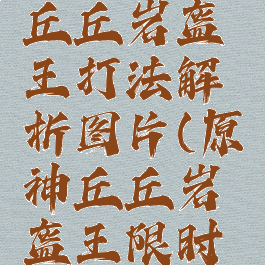 丘丘岩盔
王打法解
析图片(原
神丘丘岩
盔王限时